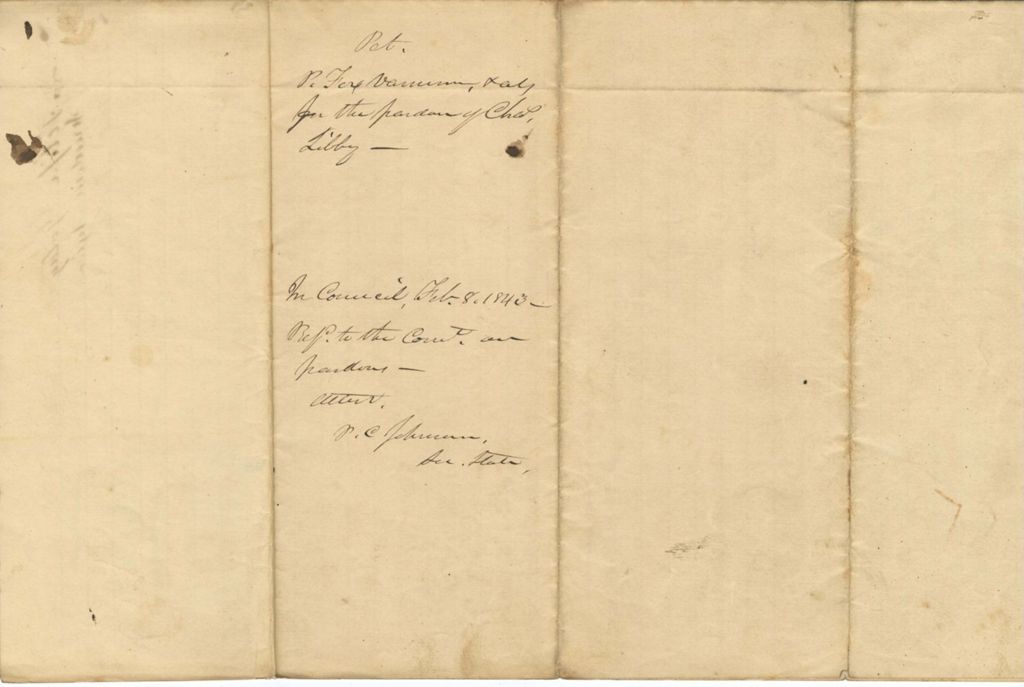 Pet.
P. Fox Varnum, & als
for the pardon of Chas.
Libby —
In Council, Feb. 8. 1843 —
Ref. to the Comt. on
pardons —
Attest,
P. C. Johnson,
Sec. State,